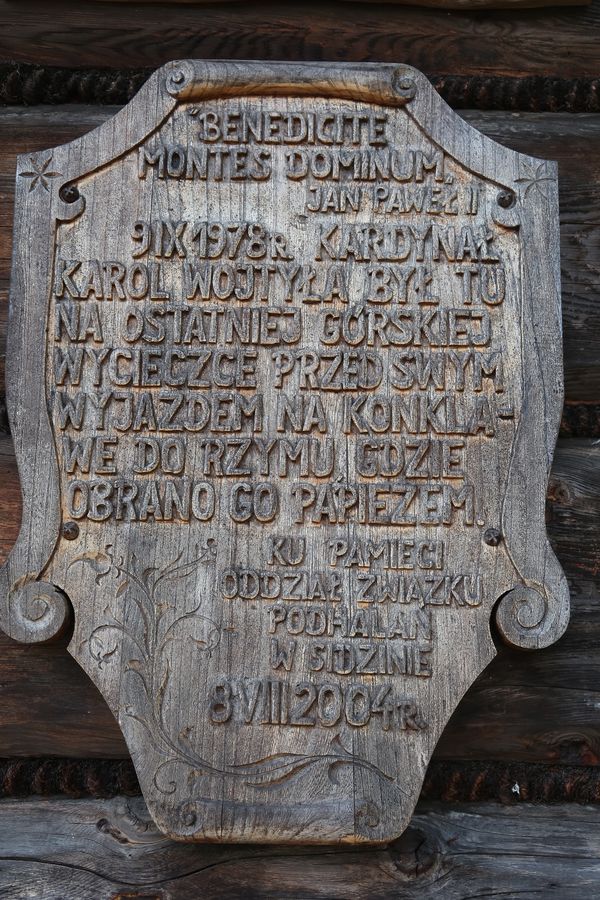 "BENEDICITE
MONTES DOMINUM"
JAN PAWEŁ II
9 IX 1978 R. KARDYNAŁ
KAROL WOJTYŁA BYŁ TU
NA OSTATNIEJ GÓRSKIEJ
WYCIECZCE PRZED SWYM
WYJAZDEM NA KONKLA-
WE DO RZYMU GDZIE
OBRANO GO PAPIEŻEM.
KU PAMIĘCI
ODDZIAŁ ZWIĄZKU
PODHALAN
W SIDZINIE
8 VIII 2004 R.